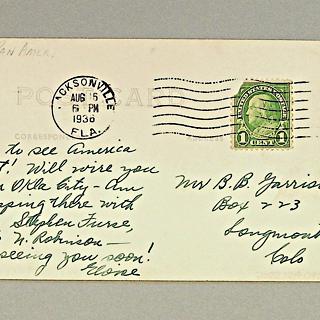 PAN AMER.
JACKSONVILLE
AUG 16
6 PM
1936
FLA.
POST CARD
CORRESPON
UNITED STATES POSTAGE
1 CENT 1
to see America
! Will wire you
Okla City - Am
pping there with
Stephen Furse,
N. Robinson -
seeing you soon!
Eloise
Mr B. B. Garris
Box 223
Longmont
Colo